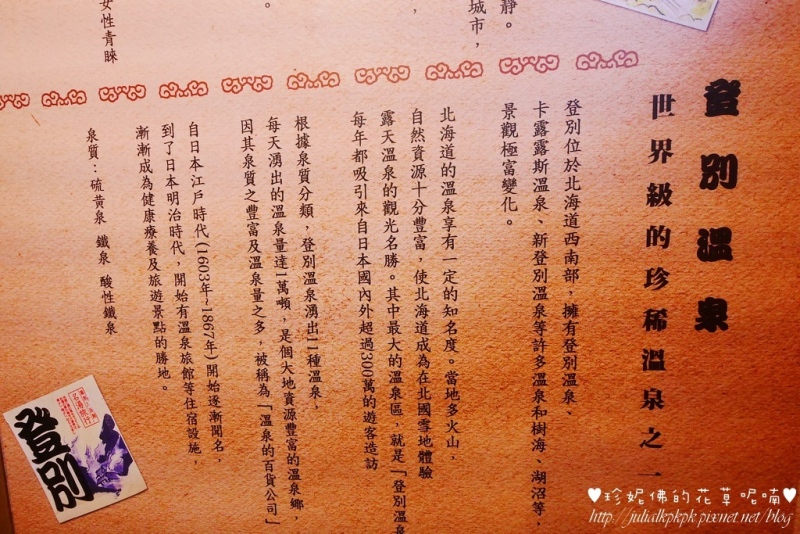 登別溫泉
世界級的珍稀溫泉之一
登別位於北海道西南部，擁有登別溫泉、
卡露露斯溫泉、新登別溫泉等許多溫泉和樹海、湖沼等，
景觀極富變化。
北海道的溫泉享有一定的知名度。當地多火山，
自然資源十分豐富，使北海道成為在北國雪地體驗
露天溫泉的觀光名勝。其中最大的溫泉區，就是「登別溫
每年都吸引來自日本國內外超過300萬的遊客造訪
根據泉質分類，登別溫泉湧出11種溫泉，
每天湧出的溫泉量達1萬噸，是個大地資源豐富的溫泉鄉，
因其泉質之豐富及溫泉量之多，被稱為「溫泉的百貨公司」
自日本江戶時代(1603年~1867年)開始逐漸聞名，
到了日本明治時代，開始有溫泉旅館等住宿設施，
漸漸成為健康療養及旅遊景點的勝地。
泉質：硫黃泉 鐵泉 酸性鐵泉
靜。
城市，
女性青睞
登別
♥珍妮佛的花草呢喃♥
http://julialkpkpk.pixnet.net/blog